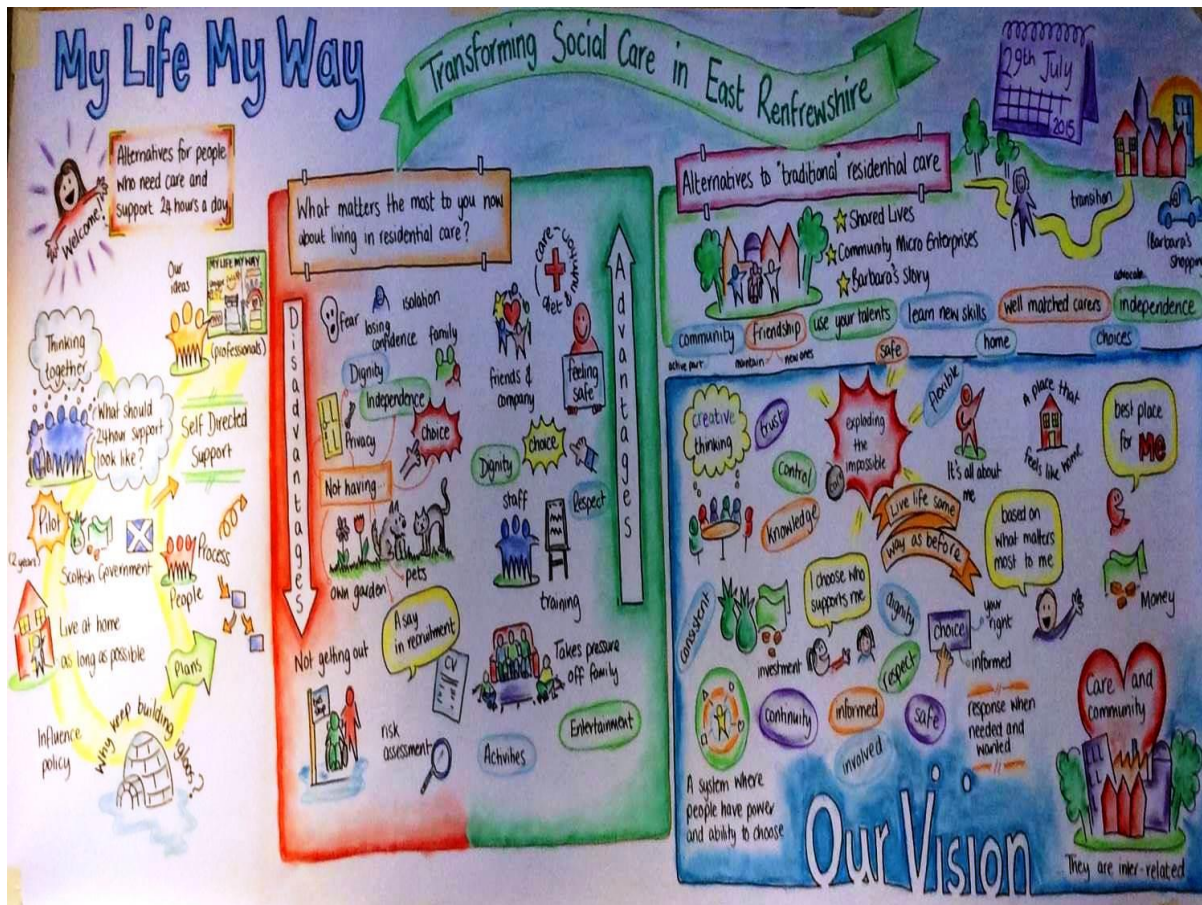 My Life My Way
Transforming Social Care in East Renfrewshire
29th July
2015
Welcome!
Alternatives for people
who need care and
support 24 hours a day
Our
ideas
MY LIFE MY WAY
(professionals)
Thinking
together
What should
24hour support
look like?
Self Directed
Support
Pilot
(2 years)
Scottish Government
Process
People
Live at home
as long as possible
Plans
Influence
policy
Why keep building igloos?
What matters the most to you now
about living in residential care?
Disadvantages
fear
isolation
losing
confidence
family
Dignity
Independence
Privacy
choice
Not having
own garden
pets
A say
in recruitment
CV
Not getting out
risk
assessment
Advantages
care-
diet &
friends &
company
feeling
safe
choice
Dignity
Respect
staff
training
Takes pressure
off family
Entertainment
Activities
Alternatives to "traditional" residential care
Shared Lives
Community Micro Enterprises
Barbara's Story
transition
(Barbara's
advocate
community
friendship
use your talents
learn new skills
well matched carers
independence
active part
maintain
new ones
safe
home
choices
creative
thinking
trust
control
knowledge
exploding
the
impossible
flexible
It's all about
me
A place that
feels like home
best place
for Me
Live life same
way as before
based on
what matters
most to me
Money
consistent
investment
I choose who
supports me
dignity
respect
choice
your
right
informed
A system where
people have power
and ability to choose
continuity
informed
involved
safe
response when
needed and
wanted
Care and
community
They are inter-related
Our Vision